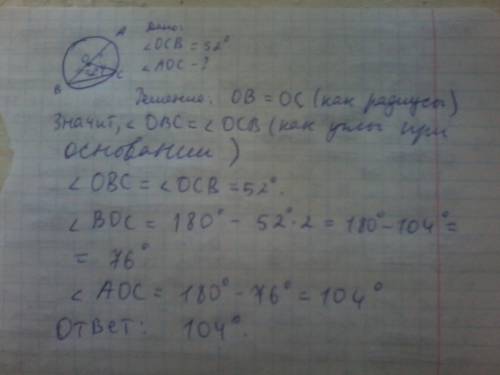 A
Дано:
∠OCB = 52°
∠AOC - ?
O
C
B
Решение: OB = OC (как радиусы)
Значит, ∠OBC = ∠OCB (как углы при
основании)
∠OBC = ∠OCB = 52°.
∠BOC = 180° - 52°·2 = 180° - 104° =
= 76°
∠AOC = 180° - 76° = 104°
Ответ: 104°.